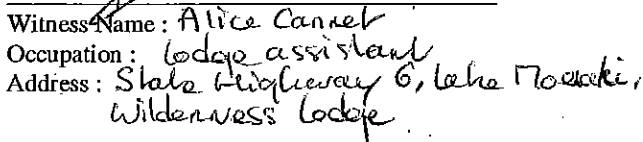 Witness Name : Alice Cannel
Occupation : lodge assistant
Address : State Highway 6, Lake Moeraki,
Wilderness lodge